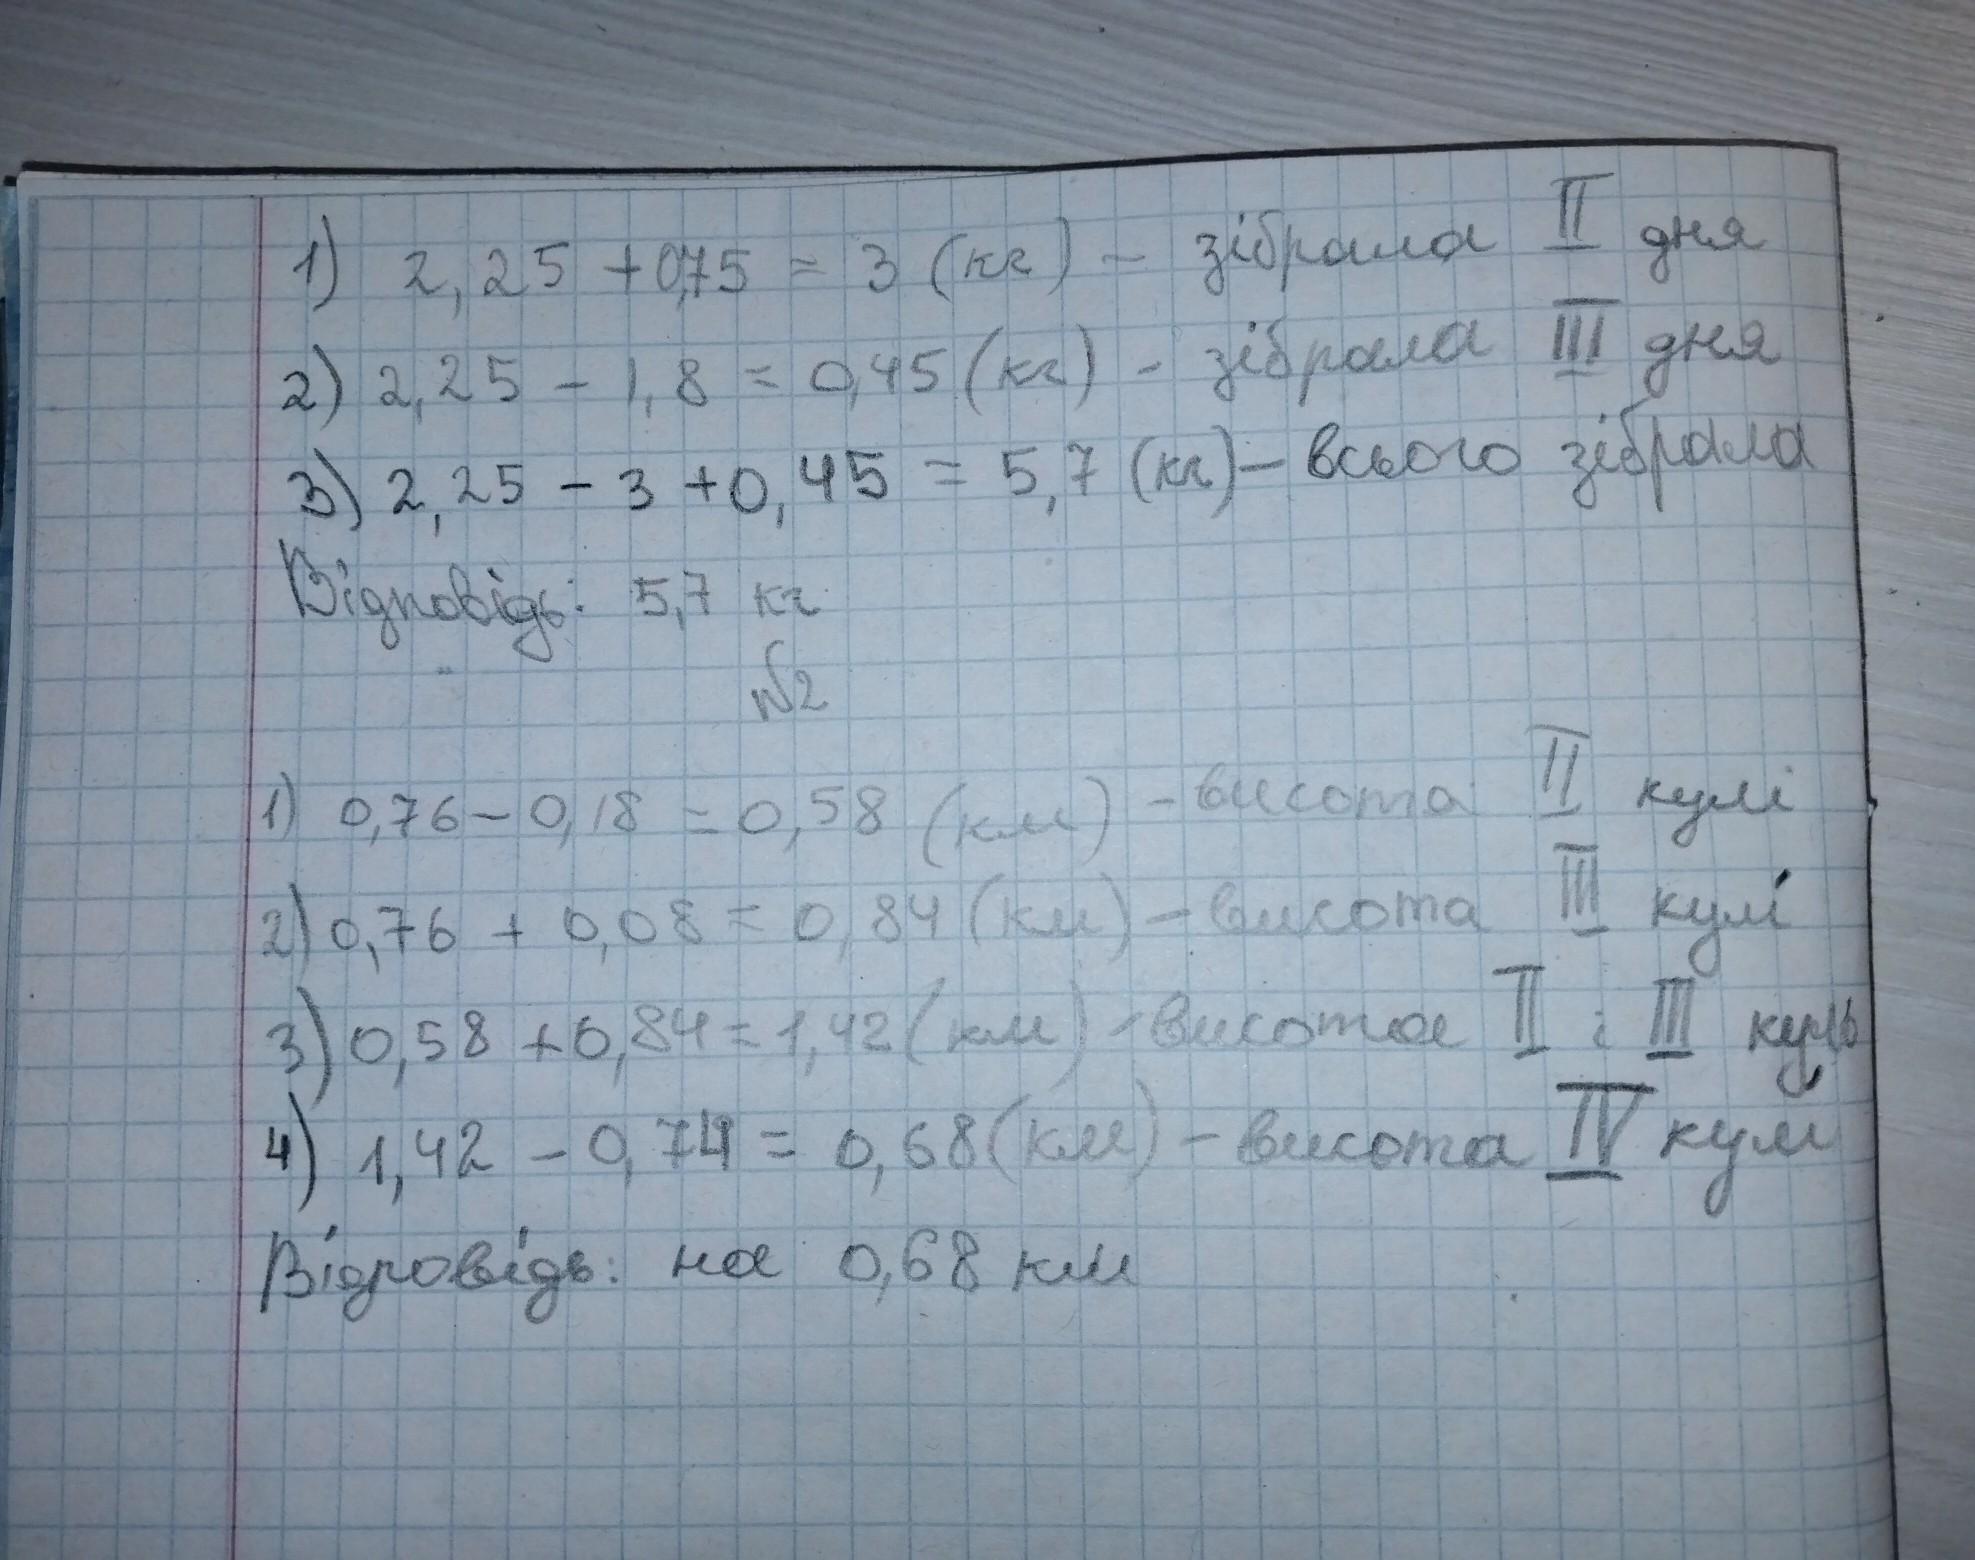 1) 2,25 + 0,75 = 3 (кг) - зібрала II дня
2) 2,25 - 1,8 = 0,45 (кг) - зібрала III дня
3) 2,25 - 3 + 0,45 = 5,7 (кг) - всього зібрала
Відповідь: 5,7 кг
№2
1) 0,76 - 0,18 = 0,58 (км) - висота II кулі
2) 0,76 + 0,08 = 0,84 (км) - висота III кулі
3) 0,58 + 0,84 = 1,42 (км) - висота II і III куль
4) 1,42 - 0,74 = 0,68 (км) - висота IV кулі
Відповідь: на 0,68 км